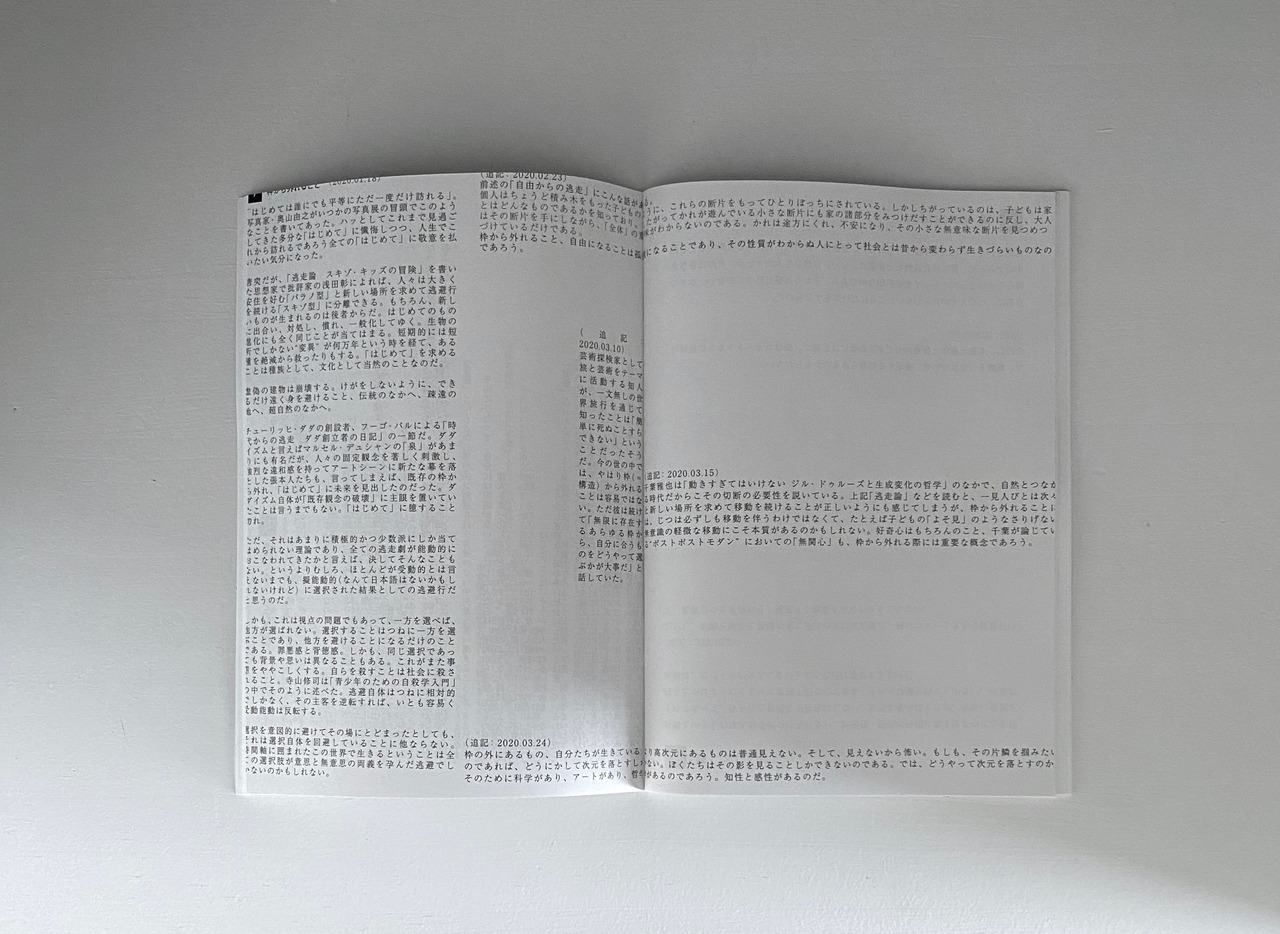 枠から外れること (2020.01.18)
「はじめては誰にでも平等にただ一度だけ訪れる」。
写真家・奥山由之がいつかの写真展の冒頭でこのよう
なことを書いてあった。ハッとしてこれまで見過ご
してきた多分な「はじめて」に懺悔しつつ、人生でこ
れから訪れるであろう全ての「はじめて」に敬意を払
いたい気分になった。
唐突だが、「逃走論　スキゾ・キッズの冒険」を書い
た思想家で批評家の浅田彰によれば、人々は大きく
安住を好む「パラノ型」と新しい場所を求めて逃避行
を続ける「スキゾ型」に分離できる。もちろん、新し
いものが生まれるのは後者からだ。はじめてのもの
に出合い、対処し、慣れ、一般化してゆく。生物の
進化にも全く同じことが当てはまる。短期的には短
所でしかない“変異”が何万年という時を経て、ある
種を絶滅から救ったりもする。「はじめて」を求める
ことは種族として、文化として当然のことなのだ。
虚偽の建物は崩壊する。けがをしないように、でき
るだけ遠く身を避けること、伝統のなかへ、疎遠の
地へ、超自然のなかへ。
チューリッヒ・ダダの創設者、フーゴ・バルによる「時
代からの逃走　ダダ創立者の日記」の一節だ。ダダ
イズムと言えばマルセル・デュシャンの「泉」があま
りにも有名だが、人々の固定観念を著しく刺激し、
強烈な違和感を持ってアートシーンに新たな幕を落
とした張本人たちも、言ってしまえば、既存の枠か
ら外れ、「はじめて」に未来を見出したのだった。ダ
ダイズム自体が「既存観念の破壊」に主眼を置いてい
たことは言うまでもない。「はじめて」に臆すること
勿れ。
ただ、それはあまりに積極的かつ少数派にしか当て
はめられない理論であり、全ての逃走劇が能動的に
おこなわれてきたかと言えば、決してそんなことも
ない。というよりむしろ、ほとんどが受動的とは言
えないまでも、擬能動的（なんて日本語はないかもし
れないけれど）に選択された結果としての逃避行だ
と思うのだ。
しかも、これは視点の問題でもあって、一方を選べば、
他方が選ばれない。選択することはつねに一方を選
ぶことであり、他方を避けることになるだけのこと
である。罪悪感と背徳感。しかも、同じ選択であっ
ても背景や思いは異なることもある。これがまた事
態をややこしくする。自らを殺すことは社会に殺さ
れること。寺山修司は「青少年のための自殺学入門」
の中でそのように述べた。逃避自体はつねに相対的
でしかなく、その主客を逆転すれば、いとも容易く
受動能動は反転する。
選択を意図的に避けてその場にとどまったとしても、
それは選択自体を回避していることに他ならない。
時間軸に囲まれたこの世界で生きるということは全
ての選択肢が意思と無意思の両義を孕んだ逃避でし
かないのかもしれない。
(追記: 2020.02.23)
前述の「自由からの逃走」にこんな話がある。
個人はちょうど積み木をもった子どものように、これらの断片をもってひとりぼっちにされている。しかしちがっているのは、子どもは家
とはどんなものであるかを知っており、したがってかれが遊んでいる小さな断片にも家の諸部分をみつけだすことができるのに反し、大人
はその断片を手にしながら、「全体」の意味がわからないのである。かれは途方にくれ、不安になり、その小さな無意味な断片を見つめつ
づけているだけである。
枠から外れること、自由になることは孤独になることであり、その性質がわからぬ人にとって社会とは昔から変わらず生きづらいものなの
であろう。
(追記
2020.03.10)
芸術探検家として
旅と芸術をテーマ
に活動する知人
が、一文無しの世
界旅行を通じて
知ったことは「簡
単に死ぬことすら
できない」という
ことだったそう
だ。今の世の中で
は、やはり枠（=
構造）から外れる
ことは容易ではな
い。ただ彼は続け
て「無限に存在す
るあらゆる枠か
ら、自分に合うも
のをどうやって選
ぶかが大事だ」と
話していた。
(追記: 2020.03.15)
千葉雅也は「動きすぎてはいけない ジル・ドゥルーズと生成変化の哲学」のなかで、自然とつなが
る時代だからこその切断の必要性を説いている。上記「逃走論」などを読むと、一見人びとは次々
と新しい場所を求めて移動を続けることが正しいようにも感じてしまうが、枠から外れることに
は、じつは必ずしも移動を伴うわけではなくて、たとえば子どもの「よそ見」のようなさりげない
無意識の軽微な移動にこそ本質があるのかもしれない。好奇心はもちろんのこと、千葉が論じてい
る“ポストポストモダン”においての「無関心」も、枠から外れる際には重要な概念であろう。
(追記: 2020.03.24)
枠の外にあるもの、自分たちが生きているより高次元にあるものは普通見えない。そして、見えないから怖い。もしも、その片鱗を掴みたい
のであれば、どうにかして次元を落とすしかない。ぼくたちはその影を見ることしかできないのである。では、どうやって次元を落とすのか
そのために科学があり、アートがあり、哲学があるのであろう。知性と感性があるのだ。